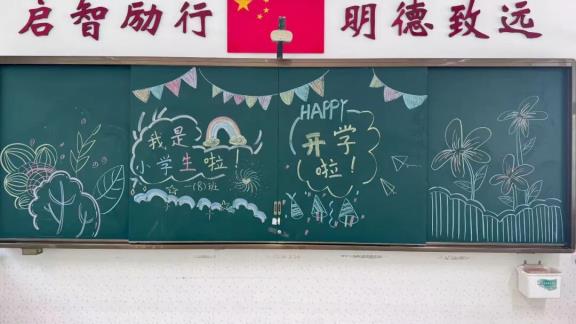 启智励行 明德致远
我是
小学生啦！
一(8)班
HAPPY
开学
啦！